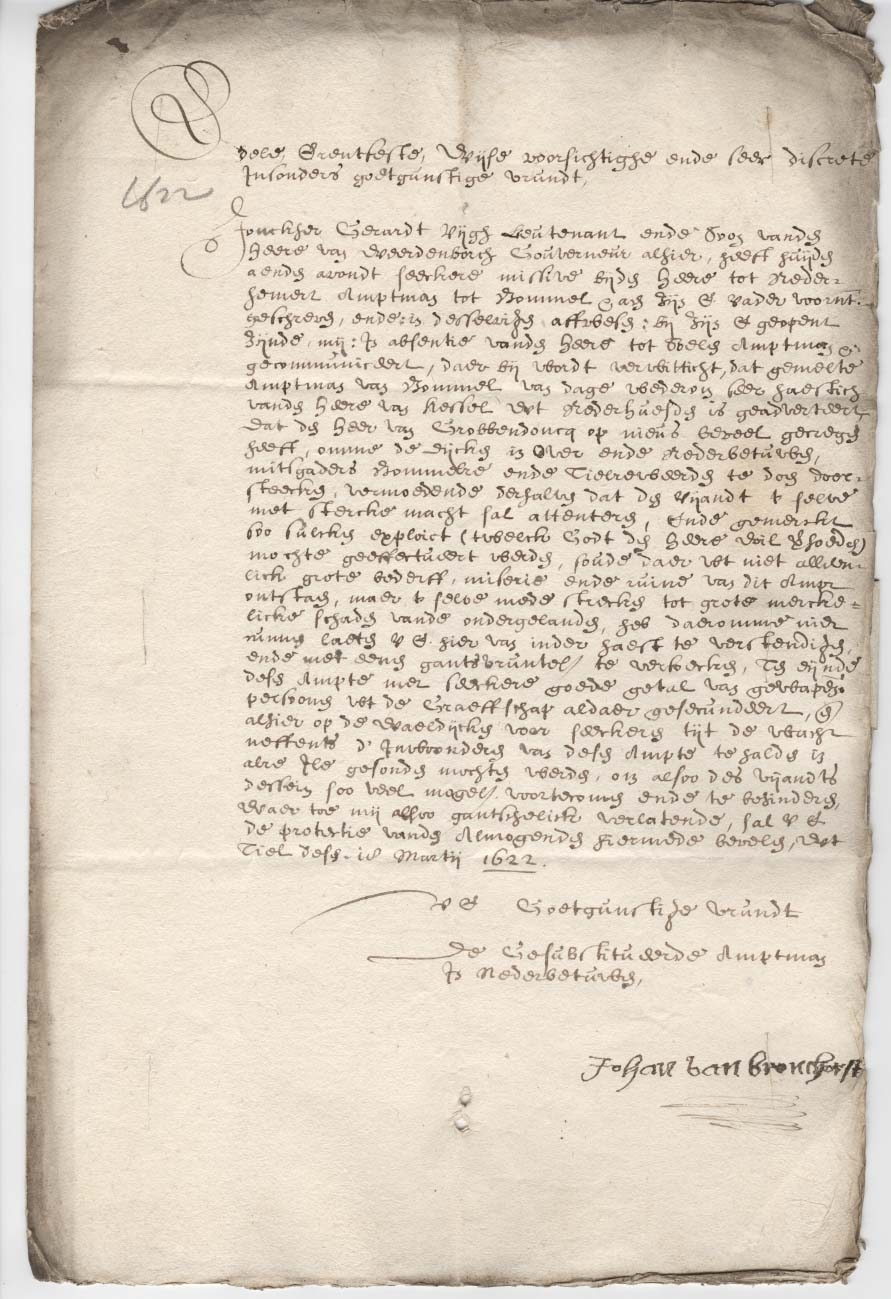 Edele, Erentfeste, Wijse voorsichtighe ende seer discrete
Insonders goetgunstige vrundt,
1622
Jonckher Gerardt Vijgh Leutenant ende Soon vanden
Heere van Weerdenborch Gouverneur alhier, heeft huijden
aenden avondt seeckere missive bijden Heere tot Neder-
hemert Amptman tot Bommel &c aen Zijn E vader voornt.
geschreven, ende in desselvigen affwesen bij Zijn E geopent
zijnde, mij in absentie vanden Heere tot Soelen Amptman &c
gecommuniceert, daer bij wordt verwitticht, dat gemelte
Amptman van Bommel van dage wederom seer haestich
vanden Heere van Kessel wt Nederhuesden is geadverteert
dat den Heer van Grobbendoncq op nieus beveel gecregen
heeft, omme de dijcken in Over ende Nederbetuwen,
mitsgaders Bommelre ende Tielreweerden te doen door-
steecken, vermoedende derhalven dat den vijandt t selve
met stercke macht sal attenteren, Ende gemerckt
soo sulcken exploict (twelck Godt den Heere wil verhoeden)
mochte geeffectueert werden, soude daer wt niet alleen-
lick grote bederff, miserie ende ruine van dit Ampt
ontstaen, maer t selve mede strecken tot grote mercke-
licke schaden vande ondergelanden, heb daeromme niet
cunnen laeten U E hier van inder haest te verstendigen,
ende met eenen gantsvruntel. te versoecken, Ten eijnde
desen Ampte met seeckere goede getal van gewapende
persoonen wt de Graeffschap aldaer gesecundeert, en
alhier op de Waeldijcken voor seeckeren tijt de wacht
neffents d' Inwoonderen van desen Ampte te halden in
alre ijle gesonden mochten werden, om alsoo des vijandts
dessein soo veel mogel. voortecomen ende te behinderen,
Waer toe mij alsoo gantschelick verlatende, sal U E
de protectie vanden Almogenden hiermede bevelen, wt
Tiel desen 18 Martij 1622.
U E Goetgunstige vrundt
De Gesubstitueerde Amptman
In Nederbetuwen,
Johan van bronchorst